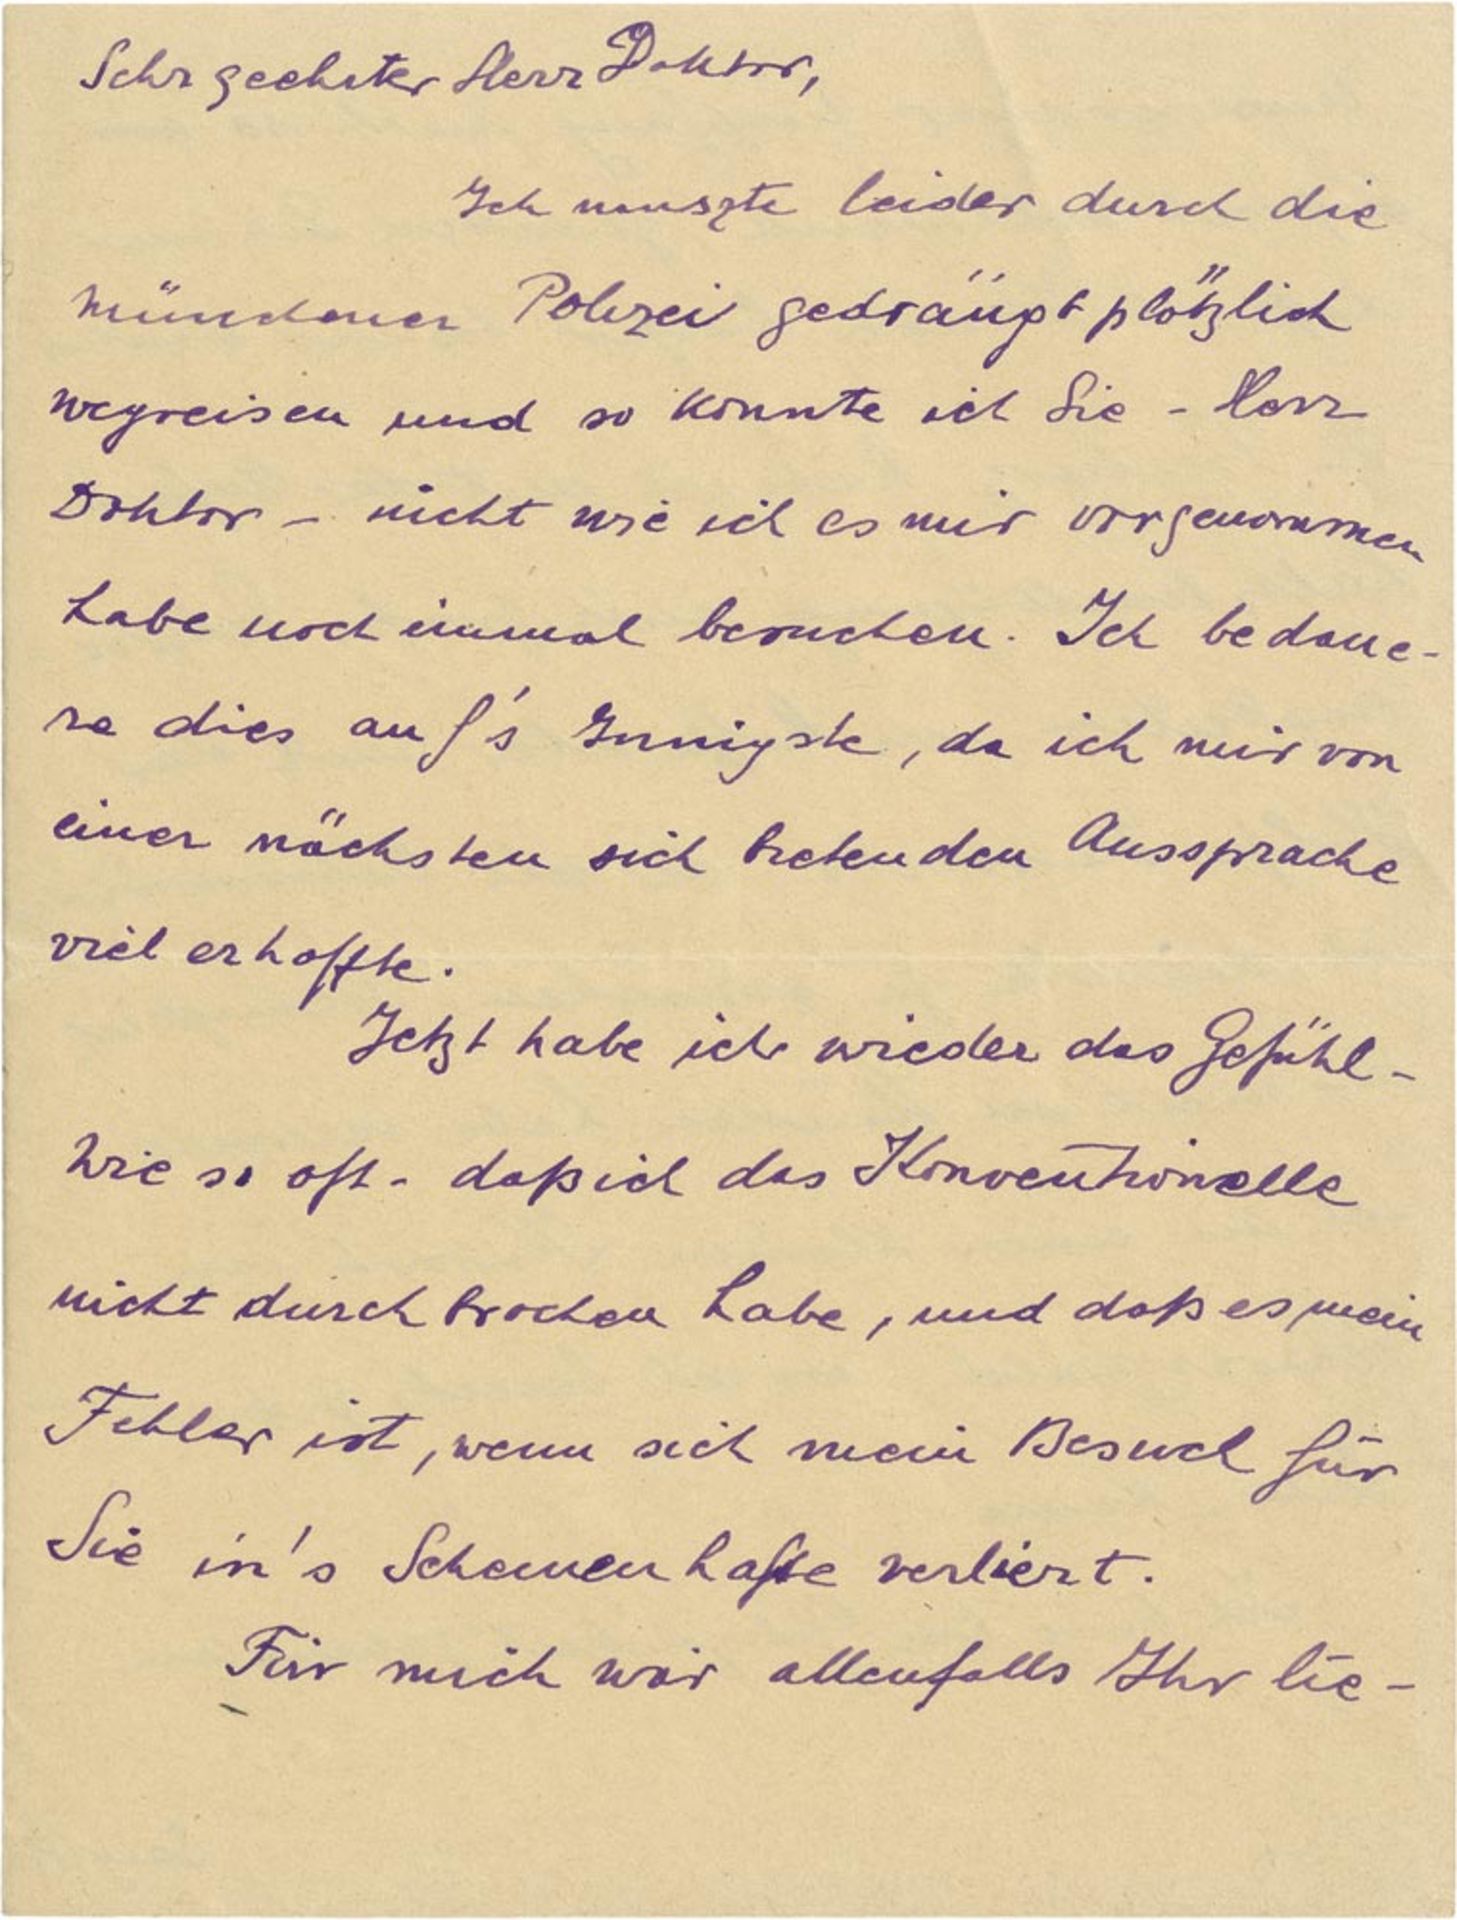 Sehr geehrter Herr Doktor,
Ich muszte leider durch die
münchener Polizei gedrängt plötzlich
wegreisen und so konnte ich Sie - Herr
Doktor - nicht wie ich es mir vorgenommen
habe noch einmal besuchen. Ich bedaue-
re dies auf's Innigste, da ich mir von
einer nächsten sich bietenden Aussprache
viel erhoffte.
Jetzt habe ich wieder das Gefühl -
wie so oft - daß ich das Konventionelle
nicht durchbrochen habe, und daß es mein
Fehler ist, wenn sich mein Besuch für
Sie in's Schemenhafte verliert.
Für mich war allenfalls Ihr lie-